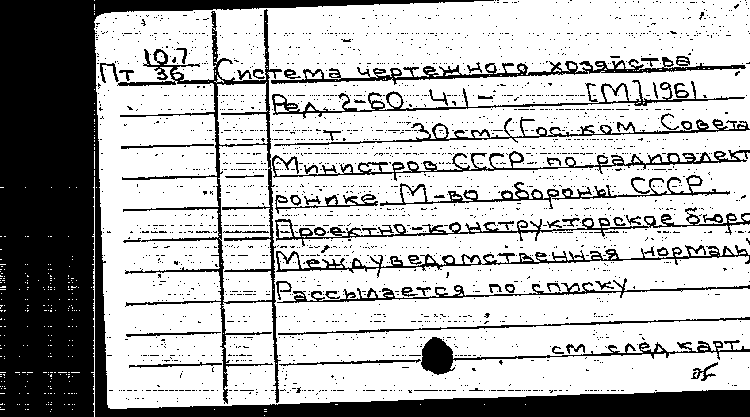 10.7
Пт 36 Система чертежного хозяйства.
Ред. 2-60. Ч.1- [М], 1961.
т. 30см. (Гос. ком. Совета
Министров СССР по радиоэлект
ронике. М-во обороны СССР.
Проектно-конструкторское бюро
Междуведомственная нормаль
Рассылается по списку.
см. след. карт.